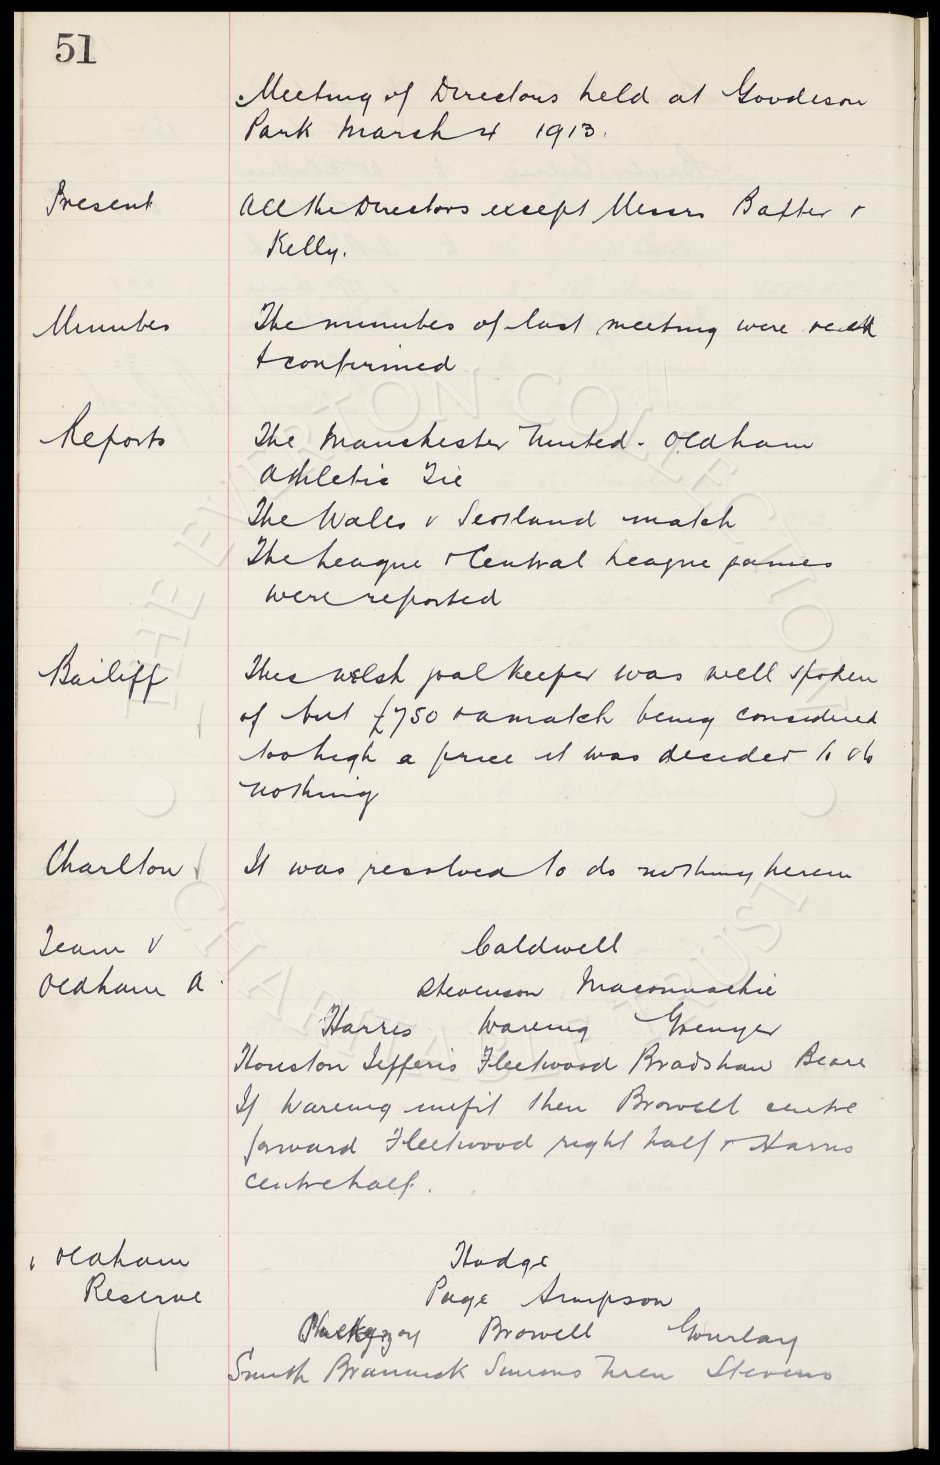 51
Meeting of Directors held at Goodison
Park March 4 1913.
Present All the Directors except Messrs Baxter &
Kelly.
Minutes The minutes of last meeting were read
& confirmed
Reports The Manchester United - Oldham
Athletic Tie
The Wales v Scotland match
The League & Central League games
were reported
Bailiff This Welsh goalkeeper was well spoken
of but £750 & a match being considered
too high a price it was decided to do
nothing
Charlton It was resolved to do nothing herein
Team v Caldwell
Oldham A. Stevenson Maconnachie
Harris Wareing Grenyer
Houston Jefferis Fleetwood Bradshaw Beare
If Wareing unfit then Browell centre
forward Fleetwood right half & Harris
centre half.
v Oldham Hodge
Reserve Page Simpson
Browell Gourlay
Smith Brannick Simons Wren Stevens
THE EVERTON COLLECTION
CHARITABLE TRUST